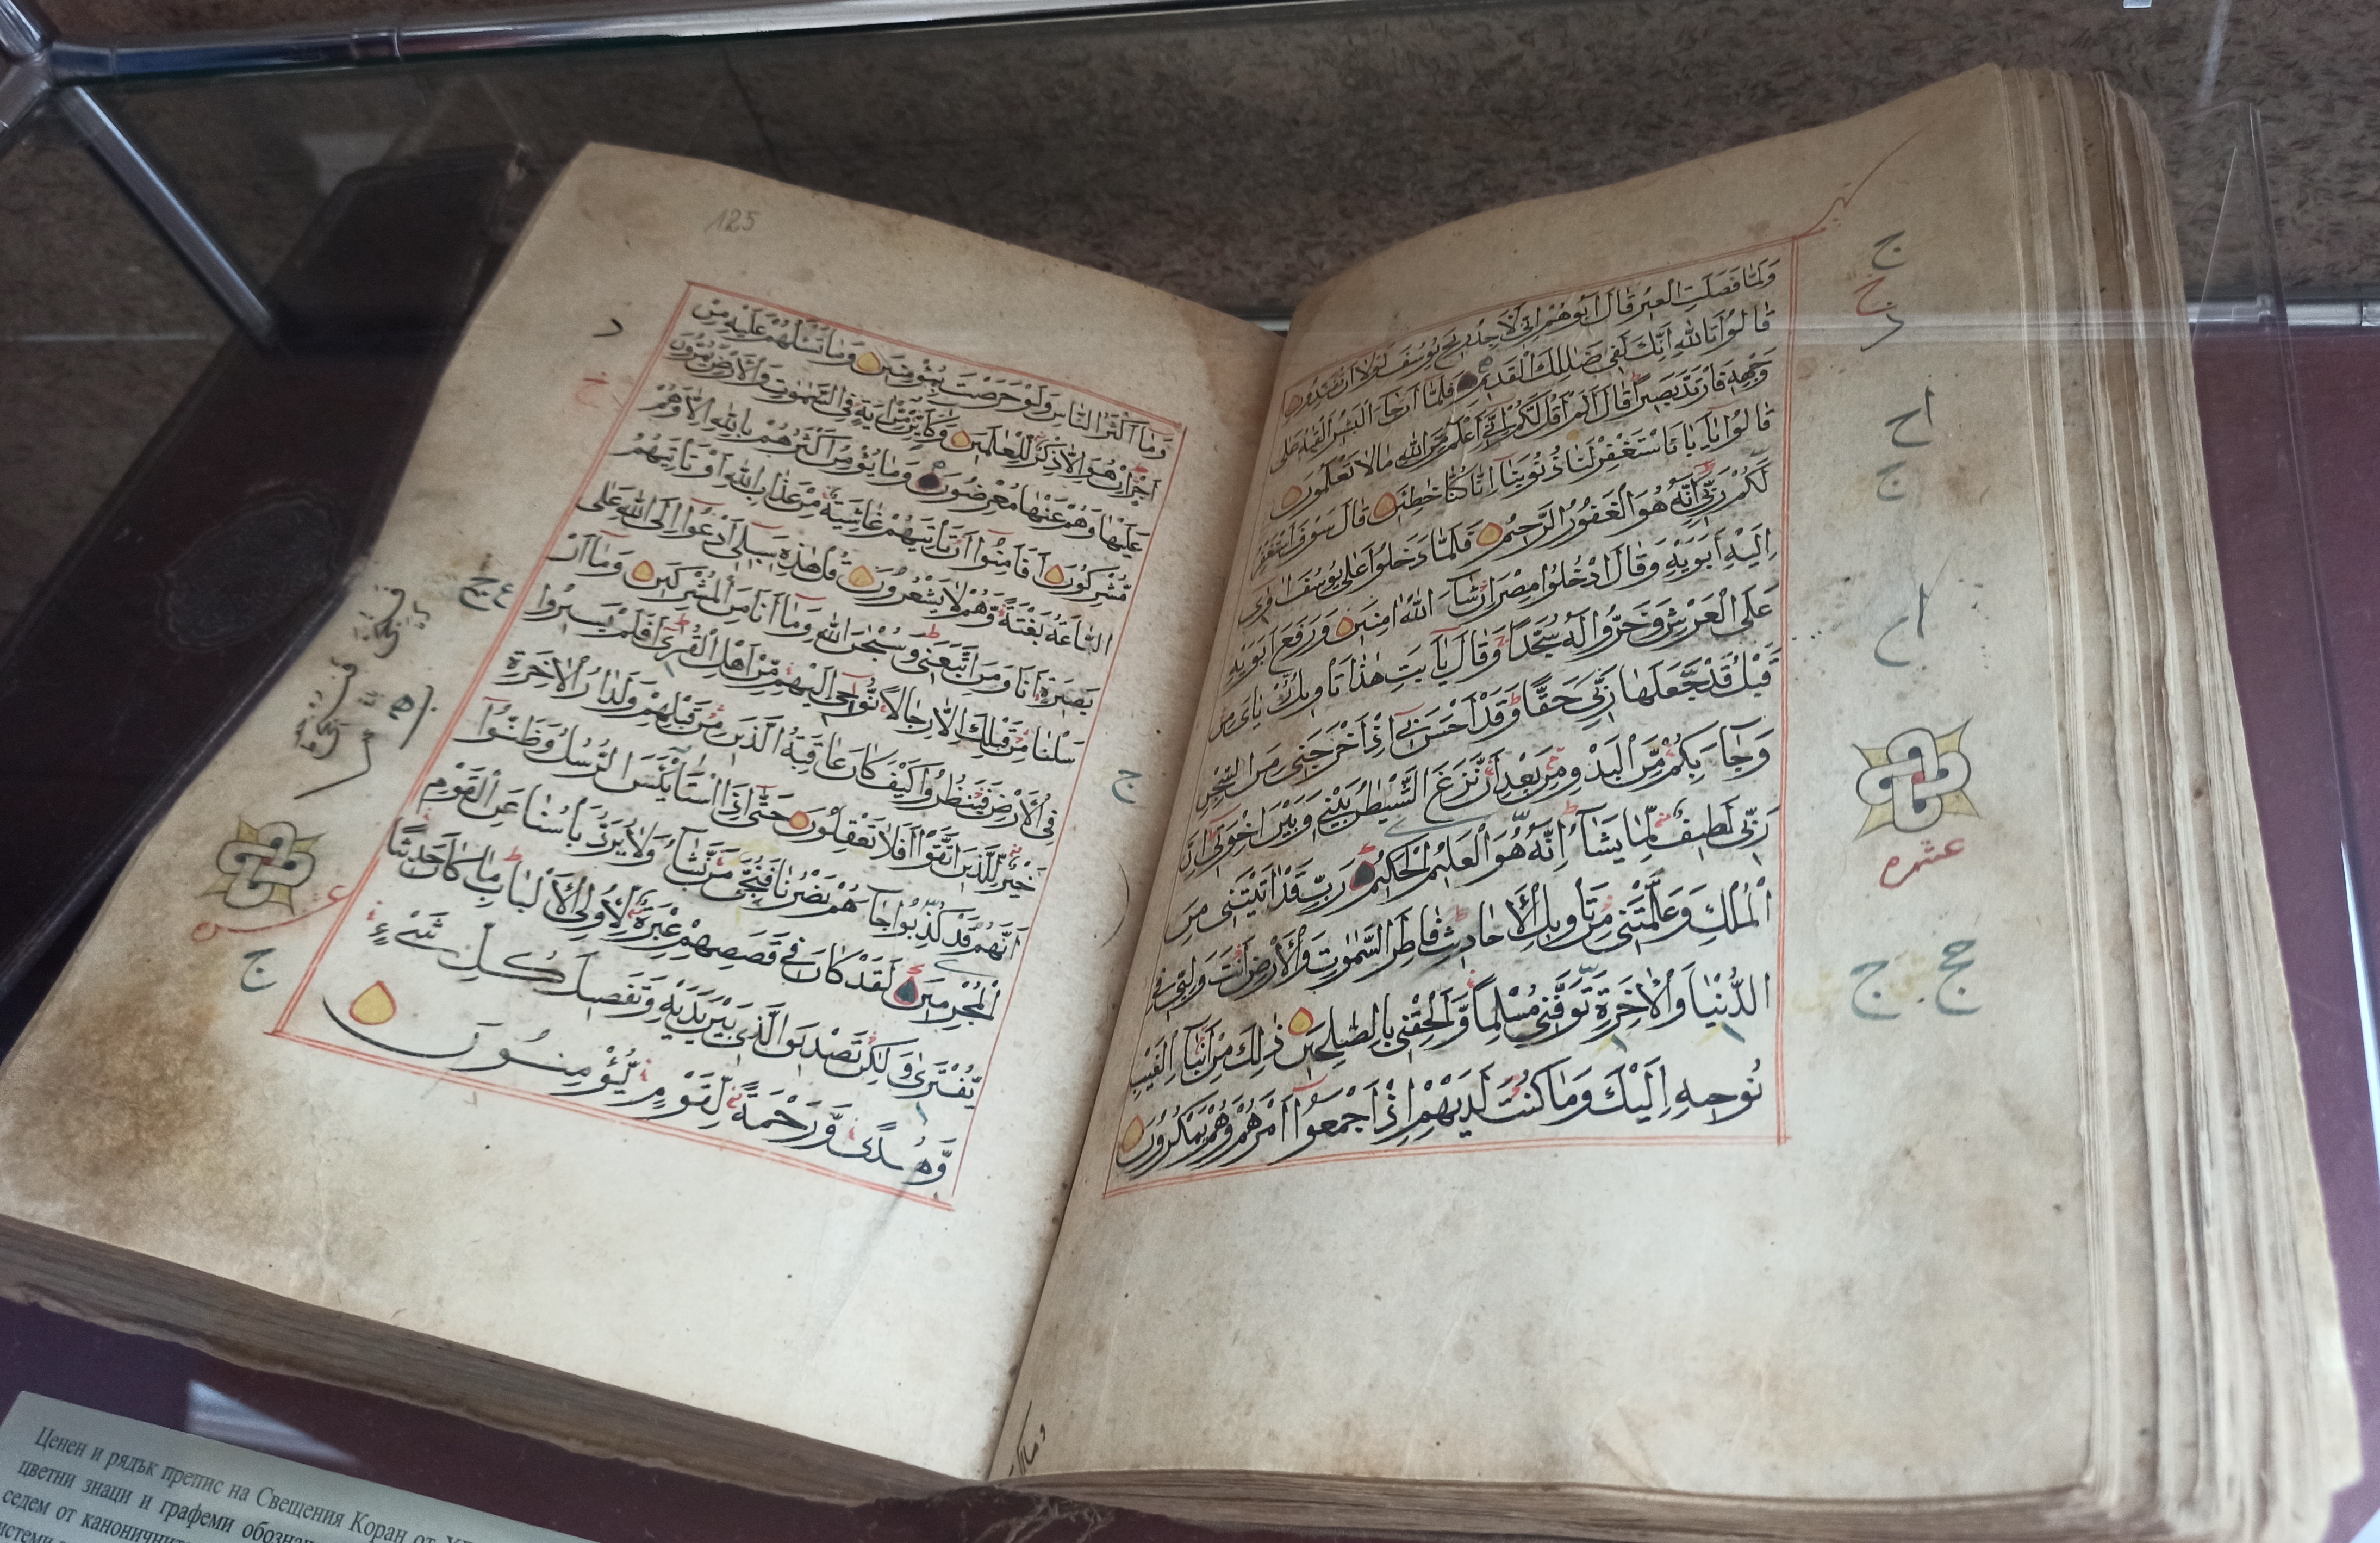 وَلَمَّا فَصَلَتِ الْعِيرُ قَالَ اَبُوهُمْ اِنِّي لَاَجِدُ رِيحَ يُوسُفَ لَوْلَا اَنْ تُفَنِّدُونِ
قَالُوا تَاللهِ اِنَّكَ لَفِي ضَلٰلِكَ الْقَدِيمِ فَلَمَّا اَنْ جَاءَ الْبَشِيرُ اَلْقٰيهُ عَلٰى
وَجْهِهِ فَارْتَدَّ بَصِيرًا قَالَ اَلَمْ اَقُلْ لَكُمْ اِنِّي اَعْلَمُ مِنَ اللهِ مَا لَا تَعْلَمُونَ
قَالُوا يَا اَبَانَا اسْتَغْفِرْ لَنَا ذُنُوبَنَا اِنَّا كُنَّا خٰطِئِينَ قَالَ سَوْفَ اَسْتَغْفِرُ
لَكُمْ رَبِّي اِنَّهُ هُوَ الْغَفُورُ الرَّحِيمُ فَلَمَّا دَخَلُوا عَلٰى يُوسُفَ اٰوٰى
اِلَيْهِ اَبَوَيْهِ وَقَالَ ادْخُلُوا مِصْرَ اِنْ شَاءَ اللهُ اٰمِنِينَ وَرَفَعَ اَبَوَيْهِ
عَلَى الْعَرْشِ وَخَرُّوا لَهُ سُجَّدًا وَقَالَ يَا اَبَتِ هٰذَا تَاْوِيلُ رُءْيَايَ مِنْ
قَبْلُ قَدْ جَعَلَهَا رَبِّي حَقًّا وَقَدْ اَحْسَنَ بِي اِذْ اَخْرَجَنِي مِنَ السِّجْنِ
وَجَاءَ بِكُمْ مِنَ الْبَدْوِ مِنْ بَعْدِ اَنْ نَزَغَ الشَّيْطٰنُ بَيْنِي وَبَيْنَ اِخْوَتِي اِنَّ
رَبِّي لَطِيفٌ لِمَا يَشَاءُ اِنَّهُ هُوَ الْعَلِيمُ الْحَكِيمُ رَبِّ قَدْ اٰتَيْتَنِي مِنَ
الْمُلْكِ وَعَلَّمْتَنِي مِنْ تَاْوِيلِ الْاَحَادِيثِ فَاطِرَ السَّمٰوٰتِ وَالْاَرْضِ اَنْتَ وَلِيِّي فِي
الدُّنْيَا وَالْاٰخِرَةِ تَوَفَّنِي مُسْلِمًا وَاَلْحِقْنِي بِالصّٰلِحِينَ ذٰلِكَ مِنْ اَنْبَاءِ الْغَيْبِ
نُوحِيهِ اِلَيْكَ وَمَا كُنْتَ لَدَيْهِمْ اِذْ اَجْمَعُوا اَمْرَهُمْ وَهُمْ يَمْكُرُونَ
ج
خ
د
اح
ج
عشره
حج ج
125
وَمَا اَكْثَرُ النَّاسِ وَلَوْ حَرَصْتَ بِمُؤْمِنِينَ وَمَا تَسْـَٔلُهُمْ عَلَيْهِ مِنْ
اَجْرٍ اِنْ هُوَ اِلَّا ذِكْرٌ لِلْعٰلَمِينَ وَكَاَيِّنْ مِنْ اٰيَةٍ فِي السَّمٰوٰتِ وَالْاَرْضِ يَمُرُّونَ
عَلَيْهَا وَهُمْ عَنْهَا مُعْرِضُونَ وَمَا يُؤْمِنُ اَكْثَرُهُمْ بِاللهِ اِلَّا وَهُمْ
مُشْرِكُونَ اَفَاَمِنُوا اَنْ تَاْتِيَهُمْ غَاشِيَةٌ مِنْ عَذَابِ اللهِ اَوْ تَاْتِيَهُمُ
السَّاعَةُ بَغْتَةً وَهُمْ لَا يَشْعُرُونَ قُلْ هٰذِهِ سَبِيلِي اَدْعُوا اِلَى اللهِ عَلٰى
بَصِيرَةٍ اَنَا وَمَنِ اتَّبَعَنِي وَسُبْحٰنَ اللهِ وَمَا اَنَا مِنَ الْمُشْرِكِينَ وَمَا اَرْ
سَلْنَا مِنْ قَبْلِكَ اِلَّا رِجَالًا نُوحِي اِلَيْهِمْ مِنْ اَهْلِ الْقُرٰى اَفَلَمْ يَسِيرُوا
فِي الْاَرْضِ فَيَنْظُرُوا كَيْفَ كَانَ عَاقِبَةُ الَّذِينَ مِنْ قَبْلِهِمْ وَلَدَارُ الْاٰخِرَةِ
خَيْرٌ لِلَّذِينَ اتَّقَوْا اَفَلَا تَعْقِلُونَ حَتّٰى اِذَا اسْتَايْـَٔسَ الرُّسُلُ وَظَنُّوا
اَنَّهُمْ قَدْ كُذِبُوا جَاءَهُمْ نَصْرُنَا فَنُجِّيَ مَنْ نَشَاءُ وَلَا يُرَدُّ بَاْسُنَا عَنِ الْقَوْمِ
الْمُجْرِمِينَ لَقَدْ كَانَ فِي قَصَصِهِمْ عِبْرَةٌ لِاُولِي الْاَلْبَابِ مَا كَانَ حَدِيثًا
يُفْتَرٰى وَلٰكِنْ تَصْدِيقَ الَّذِي بَيْنَ يَدَيْهِ وَتَفْصِيلَ كُلِّ شَيْءٍ
وَهُدًى وَرَحْمَةً لِقَوْمٍ يُؤْمِنُونَ
د
خ
عشره
ج
ج
Ценен и рядък препис на Свещения Коран от
цветни знаци и графеми
седем от